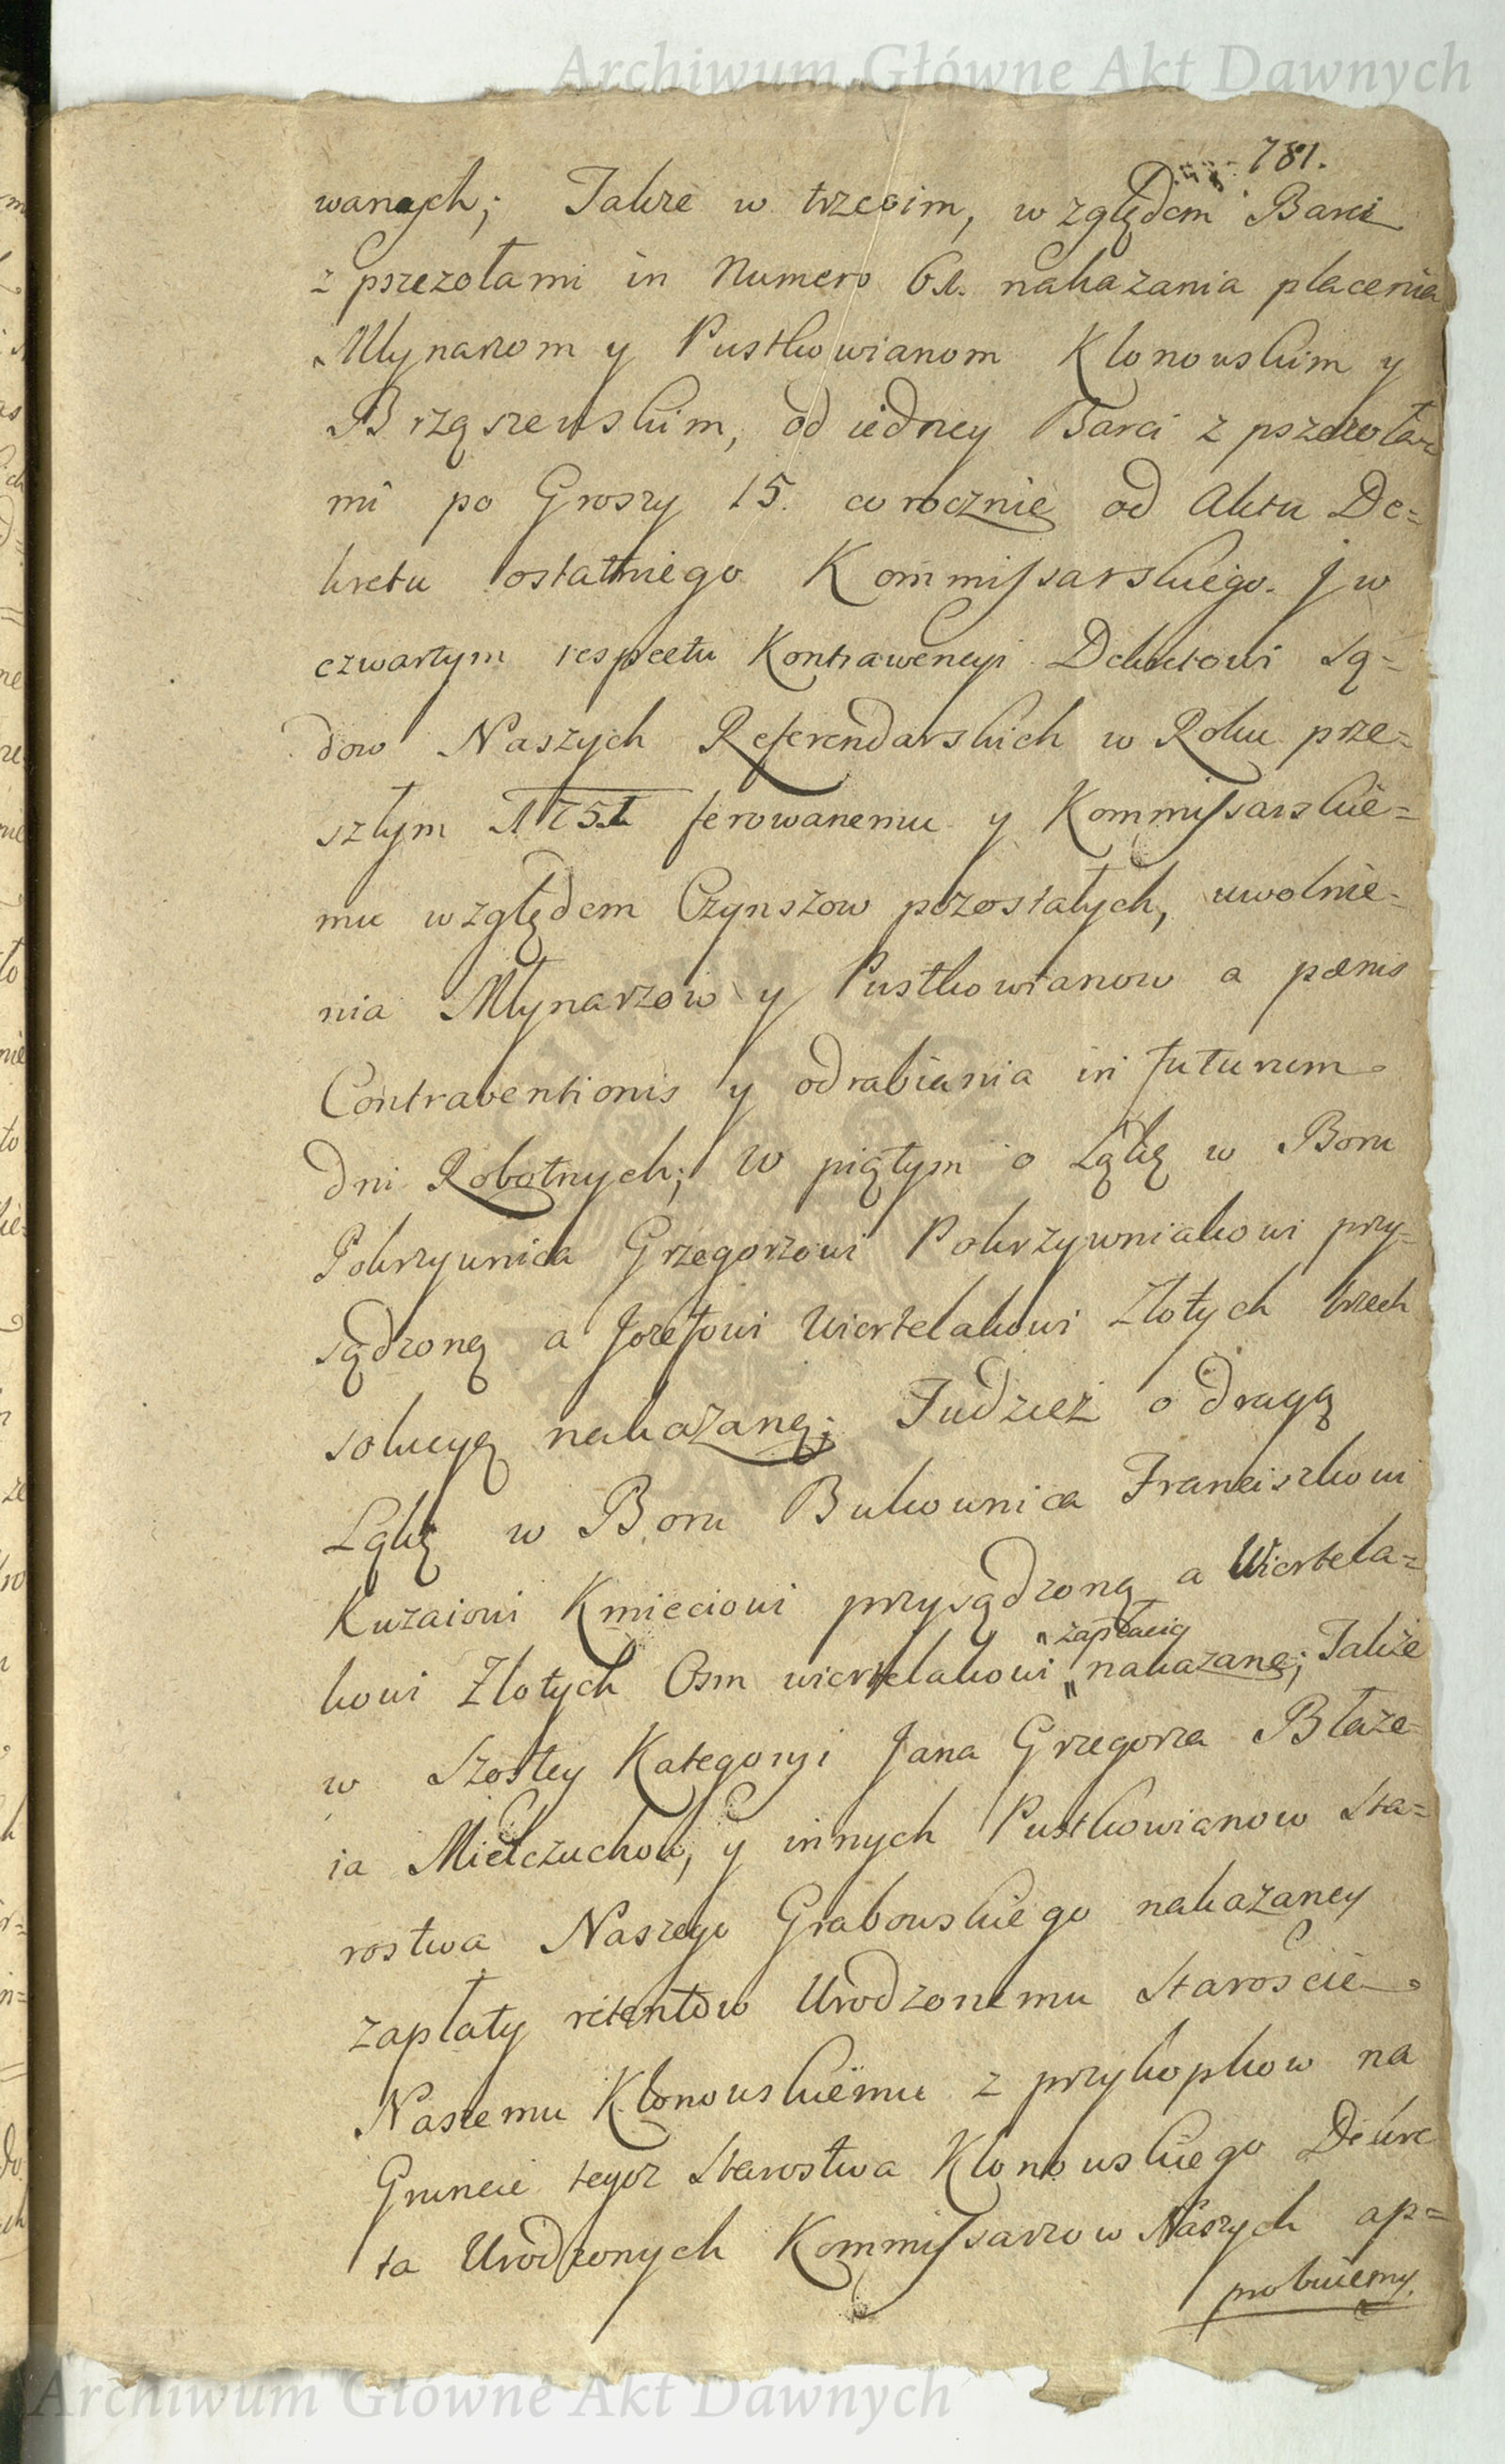 Archiwum Główne Akt Dawnych
781.
wanych; Także w trzecim, względem Barci
z pszczołami in Numero 61. nakazania płacenia
Młynarzom y Pustkowianom Klonowskim y
Brząszewskim, od iedney Barci z pszczoła=
mi po Groszy 15. corocznie od Aktu De=
kretu ostatniego Kommissarskiego. J w
czwartym respectu Kontrawencyi Dekretowi Są=
dow Naszych Referendarskich w Roku prze=
szłym 1751 ferowanemu y Kommissarskie=
mu względem Czynszow pozostałych, uwolnie=
nia Młynarzow y Pustkowianow a pœnis
Contraventionis y odrabiania in futurum
dni Robotnych; W piątym o Łąkę w Boru
Pokrzywnica Grzegorzowi Pokrzywniakowi przy=
sądzoną a Jozefowi Wiertelakowi Złotych trzech
solucyą nakazaną; Tudzież o drugą
Łąkę w Boru Bukownica Franciszkowi
Kuzaiowi Kmieciowi przysądzoną a Wiertela=
zapłacią
kowi Złotych Osm wiertelakowi nakazaną; Także
w Szostey Kategoryi Jana Grzegorza Błaże=
ia Mielczuchow, y innych Pustkowianow Sta=
rostwa Naszego Grabowskiego nakazaney
zapłaty retentow Urodzonemu Staroscie
Naszemu Klonowskiemu z przykopkow na
Gruncie tegoż Starostwa Klonowskiego Dekre
ta Urodzonych Kommissarzow Naszych ap=
probuiemy.
Archiwum Główne Akt Dawnych